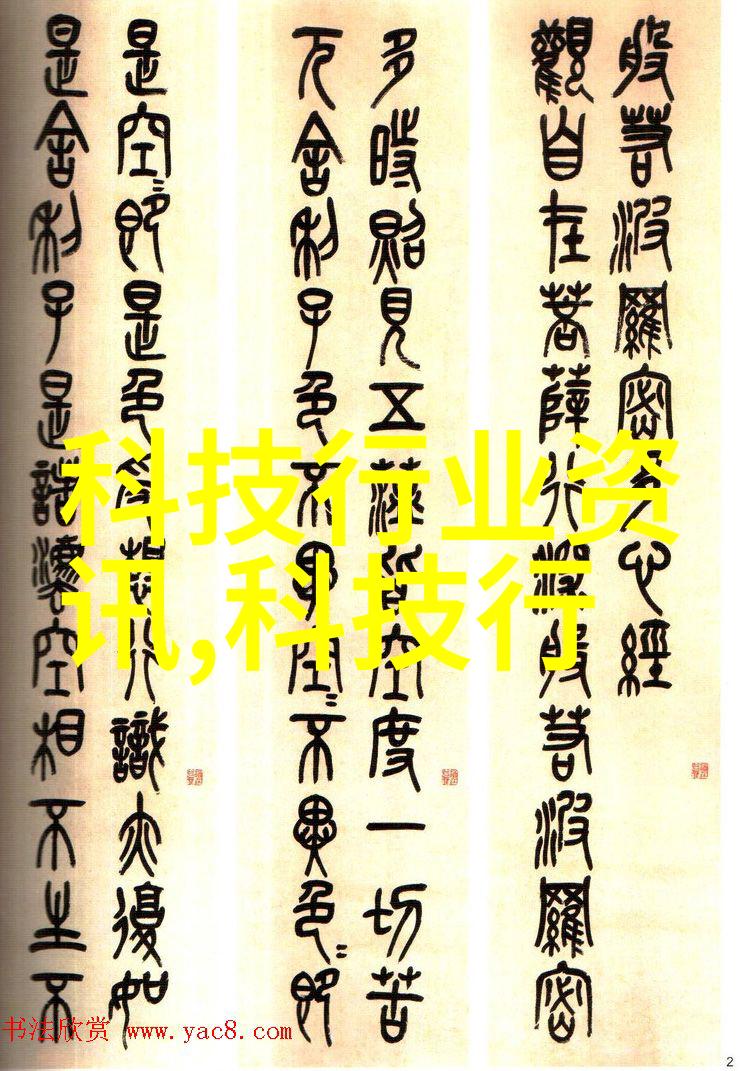 般若波羅密多心經
觀自在菩薩行深般若波羅密
多時照見五蘊皆空度一切苦
厄舍利子色不異空〻不異色〻即
是空〻即是色受想行識亦復如
是舍利子是諸灋空相不生不
科技行业资
讯,科技行
书法欣赏 www.yac8.com
2